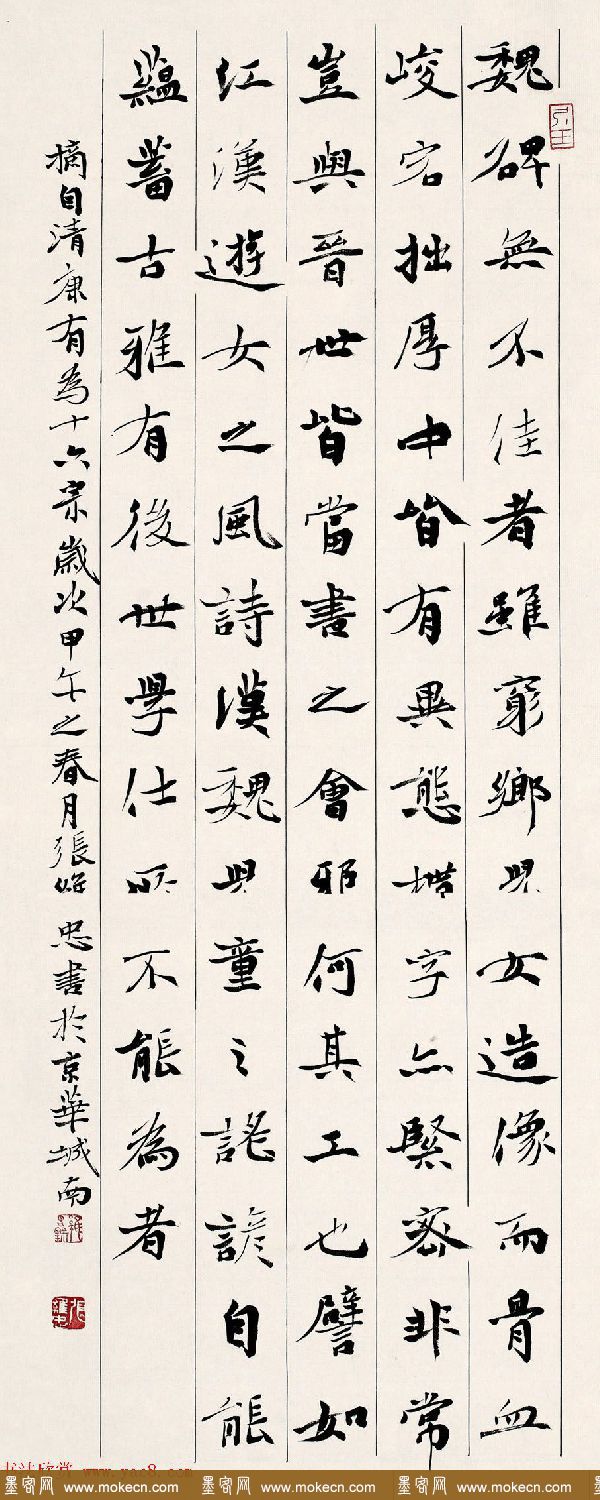 魏碑無不佳者雖窮鄉兒女造像而骨血
峻宕拙厚中皆有異態構字亦緊密非常
豈與晉世皆當書之會邪何其工也譬如
江漢遊女之風詩漢魏兒童之謠諺自能
蘊蓄古雅有後世學仕所不能為者
摘自清康有為十六宗歲次甲午之春月張維忠書於京華城南
书法欣赏 www.yac8.com
墨客网 www.mokecn.com 墨客网 www.mokecn.com 墨客网 www.mokecn.com